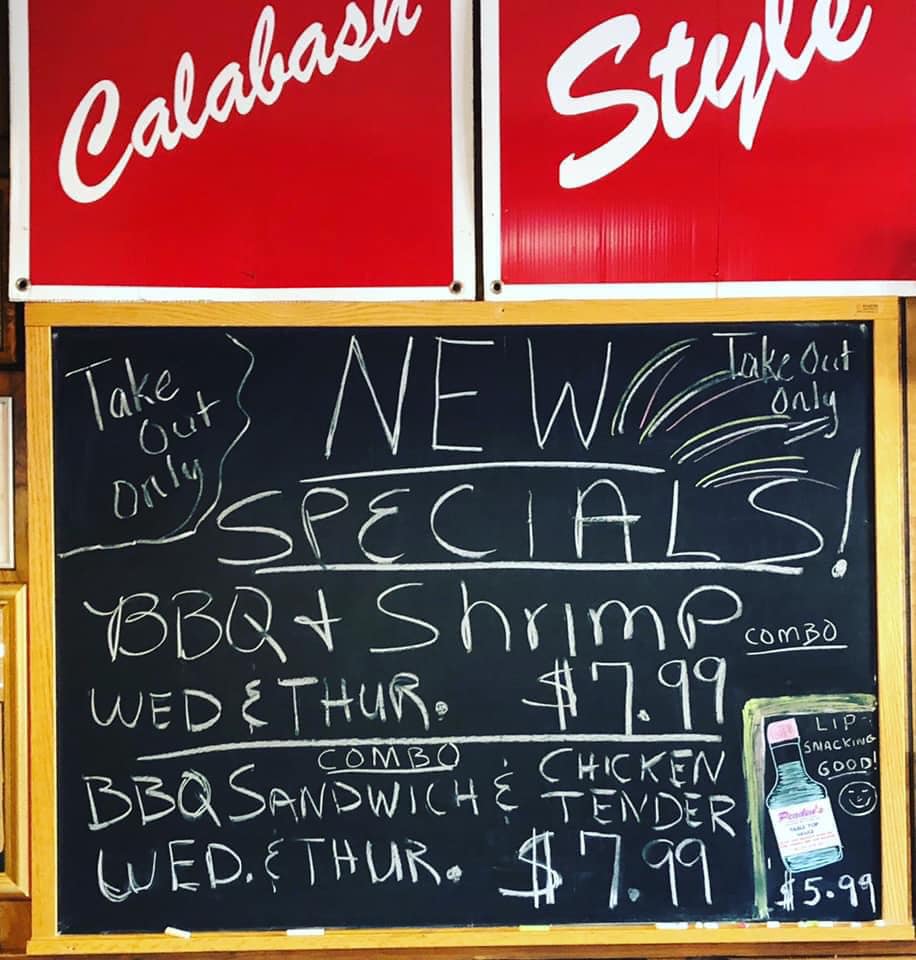 Calabash Style
Take
Out
Only
NEW
Take Out
Only
SPECIALS!
BBQ + Shrimp COMBO
WED & THUR. $7.99
COMBO
BBQ SANDWICH & CHICKEN
TENDER
WED. & THUR. $7.99
LIP
SMACKING
GOOD!
TABLE TOP
SAUCE
$5.99